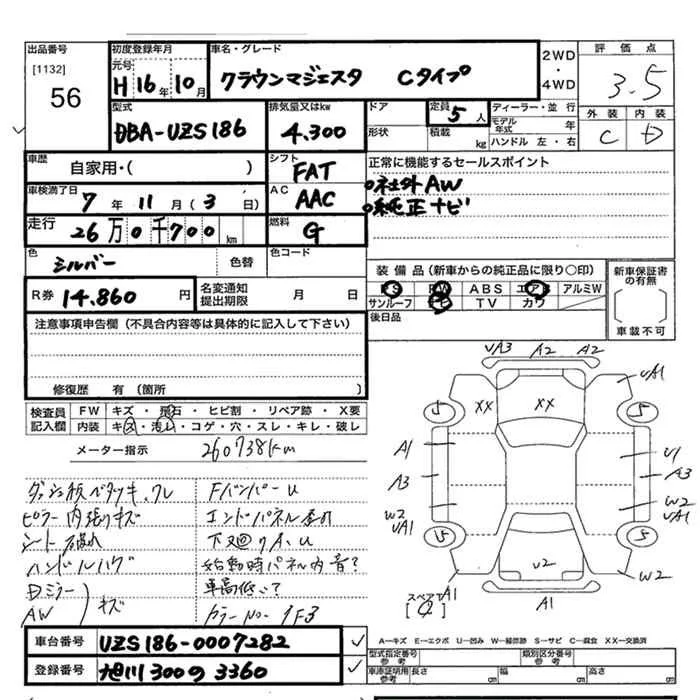 出品番号
[1132]
56
初度登録年月
元号
H 16年 10月
車名・グレード
クラウンマジェスタ Cタイプ
2WD
・
4WD
評価点
3.5
外装 内装
C D
型式
DBA-UZS186
排気量又はkw
4.300
ドア
形状
定員
5人
積載
kg
ディーラー・並行
モデル年式 年
ハンドル 左・右
車歴
自家用・( )
シフト
FAT
車検満了日
7年 11月 (3日)
AC
AAC
走行
26万0千700km
燃料
G
正常に機能するセールスポイント
社外AW
純正ナビ
色
シルバー
色替
色コード
R券 14.860円
名変通知
提出期限
月 日
装備品(新車からの純正品に限り○印)
PS PW ABS エアB アルミW
サンルーフ ナビ TV カワ
後日品
新車保証書
の有無
車載不可
注意事項申告欄(不具合内容等は具体的に記入して下さい)
修復歴 有(箇所 )
検査員
記入欄
FW キズ・飛石・ヒビ割・リペア跡・X要
内装 キズ・汚レ・コゲ・穴・スレ・キレ・破レ
メーター指示 260738km
ダッシュ板ベタツキ、ワレ
ピラー内張りキズ
シート破れ
ハンドルハゲ
Dミラー
AW
キズ
Fバンパーu
エンドパネル歪み
下廻りA、u
始動時パネル内音?
車高低い?
カラーNo- 1F3
UA3 A2 A2
UA1
XX XX
5 5
A1 U1
A3 A3
W2 W2
UA1 UA1
5 5
U2
A1 W2
A1
スペアT
A-キズ E-エクボ U-凹み W-補修跡 S-サビ C-腐食 XX-交換済
車台番号 UZS186-0007282
登録番号 旭川300の3360
型式指定番号
参考
類別区分番号
参考
車庫証明用
参考
長さ cm 幅 cm 高さ cm